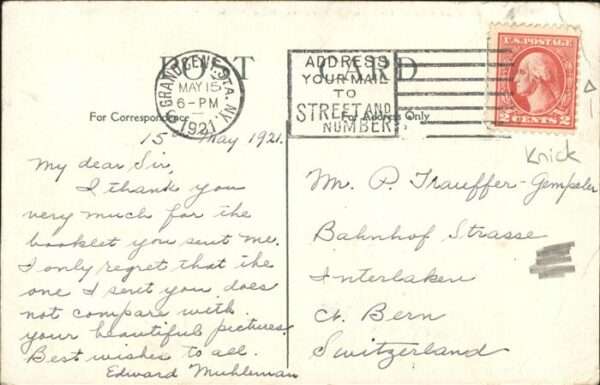 POST CARD
GRAND CEN. STA. N.Y.
MAY 15
6-PM
1921
ADDRESS
YOUR MAIL
TO
STREET AND
NUMBER
U.S. POSTAGE
2 CENTS 2
For Correspondence
For Address Only
Knick
15 May 1921.
My dear Sir,
I thank you
very much for the
booklet you sent me.
I only regret that the
one I sent you does
not compare with
your beautiful pictures.
Best wishes to all.
Edward Muhleman
Mr. P. Trauffer-Gempeler
Bahnhof Strasse
Interlaken
Ct. Bern
Switzerland